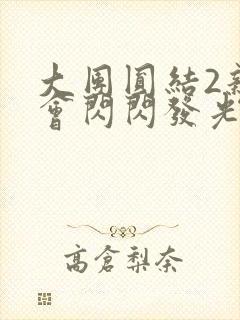 大團圓結2
會閃閃發光
高倉梨奈